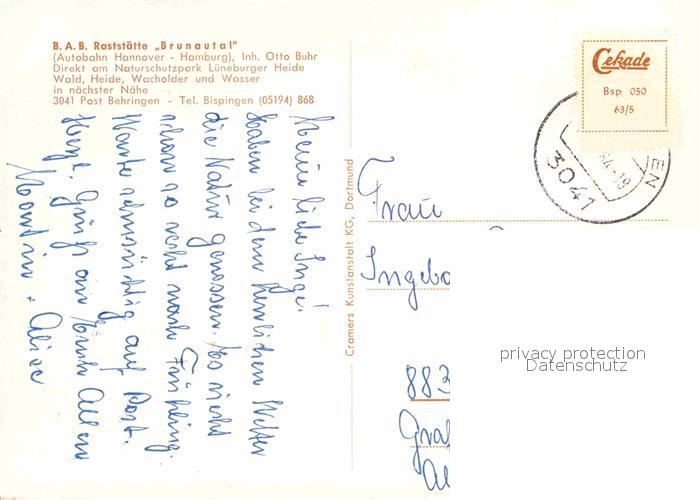 B. A. B. Raststätte „Brunautal"
(Autobahn Hannover - Hamburg), Inh. Otto Buhr
Direkt am Naturschutzpark Lüneburger Heide
Wald, Heide, Wacholder und Wasser
in nächster Nähe
3041 Post Behringen - Tel. Bispingen (05194) 868
Meine liebe Inge!
Haben bei dem herrlichen Wetter
die Natur genossen. Es riecht
schon so recht nach Frühling.
Warte sehnsüchtig auf Post.
Herzl. Grüße an Euch Allen
Martin + Alice
Cramers Kunstanstalt KG, Dortmund
Cekade
Bsp 050
63/5
EN
3041
Frau
Ingebo
883
Gra
privacy protection
Datenschutz